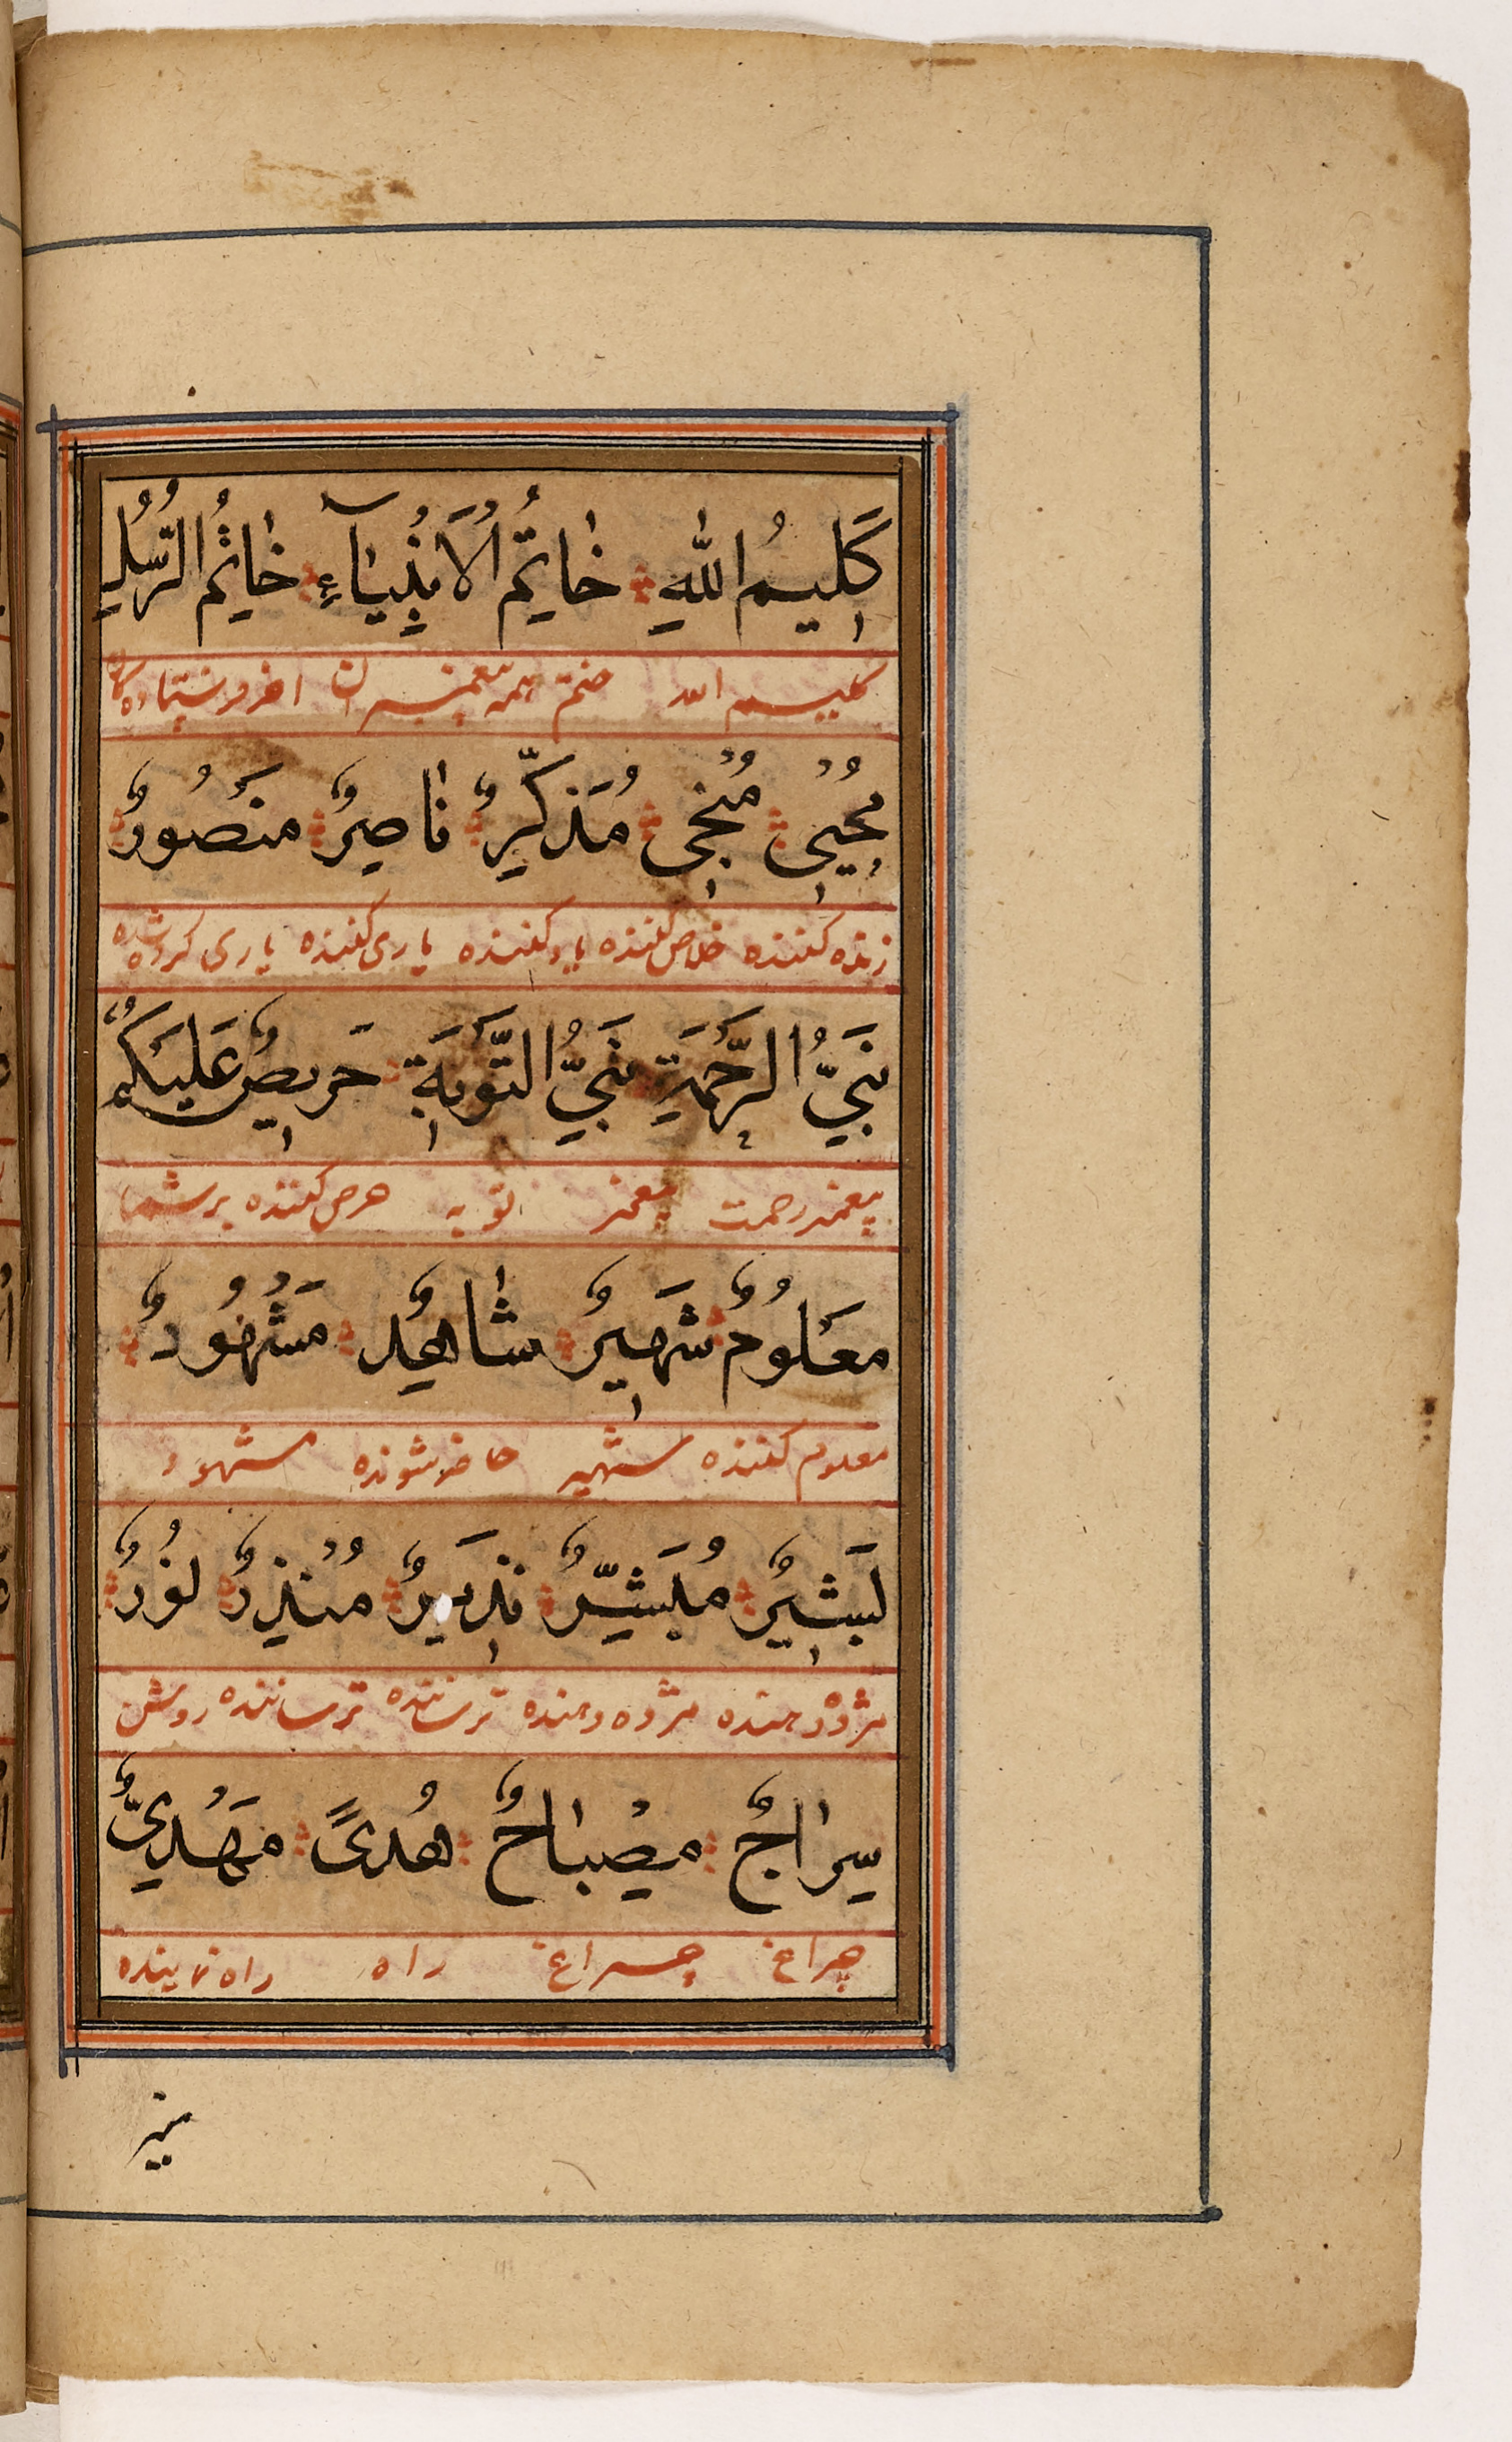 كَلِيمُ اللهِ خَاتِمُ الْأَنْبِيَآءِ خَاتِمُ الرُّسُلِ
كليم الله ختم همه پیغمبران اخر فرستادهكان
مُحْيِيْ مُنْجِيْ مُذَكِّرٌ نَاصِرٌ مَنْصُورٌ
زنده کننده خلاص کننده یاد کننده یاری کننده یاری کرده شده
نَبِيُّ الرَّحْمَةِ نَبِيُّ التَّوْبَةِ حَرِيصٌ عَلَيْكُمْ
پیغمبر رحمت پیغمبر توبه حرص کننده بر شما
مَعْلُومٌ شَهِيرٌ شَاهِدٌ مَشْهُودٌ
معلوم کننده شهیر حاضر شونده مشهود
بَشِيرٌ مُبَشِّرٌ نَذِيرٌ مُنْذِرٌ نُورٌ
مژده دهنده مژده دهنده ترساننده ترساننده روشن
سِرَاجٌ مِصْبَاحٌ هُدًى مَهْدِيٌّ
چراغ چراغ راه راه نماینده
منیر